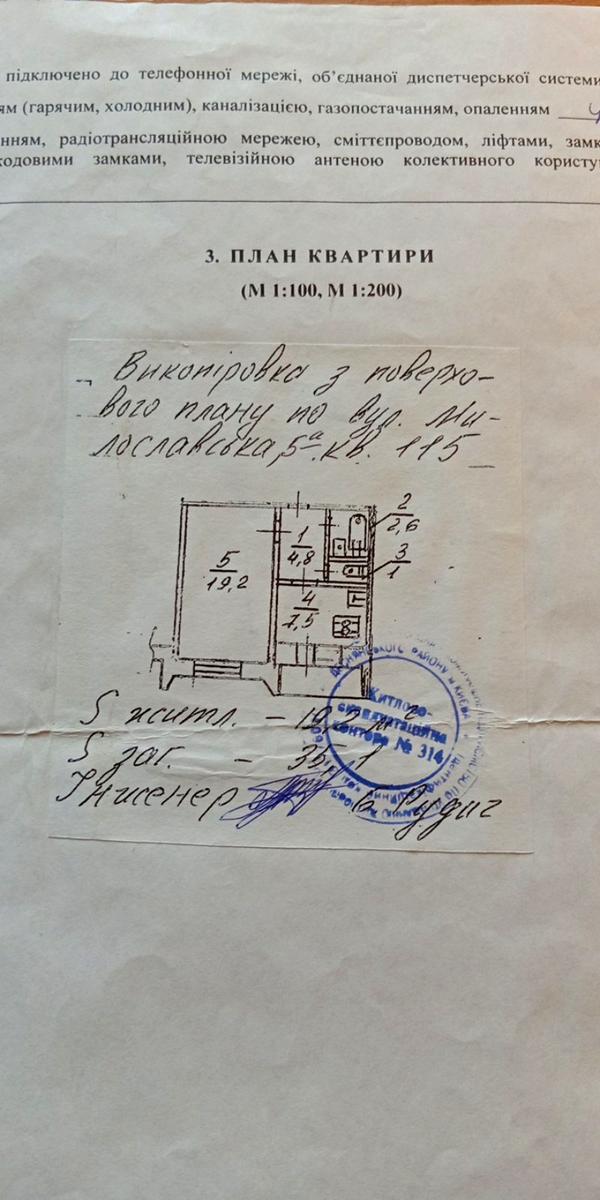 підключено до телефонної мережі, об'єднаної диспетчерської системи
ям (гарячим, холодним), каналізацією, газопостачанням, опаленням
нням, радіотрансляційною мережею, сміттєпроводом, ліфтами, замк
кодовими замками, телевізійною антеною колективного користу
3. ПЛАН КВАРТИРИ
(М 1:100, М 1:200)
Викопіровка з поверхо-
вого плану по вул. Ми-
лославська, 5а кв. 115
2
2,6
1
4,8
3
1
5
19,2
4
7,5
S житл. - 19,2 м2
S заг. - 35,1
Інженер
Житлово-
експлуатаційна
контора № 314
РАЙОНУ м.КИЄВА